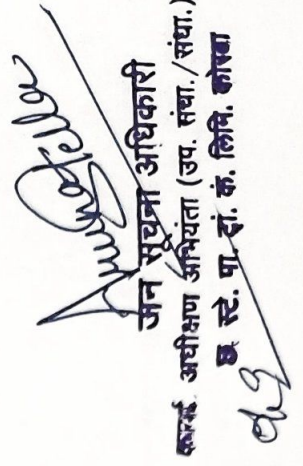 जन सूचना अधिकारी
कार्या. अधीक्षण अभियंता (उप. संधा./संधा.)
छ. स्टे. पा. ट्रां. कं. लिमि. कोरबा